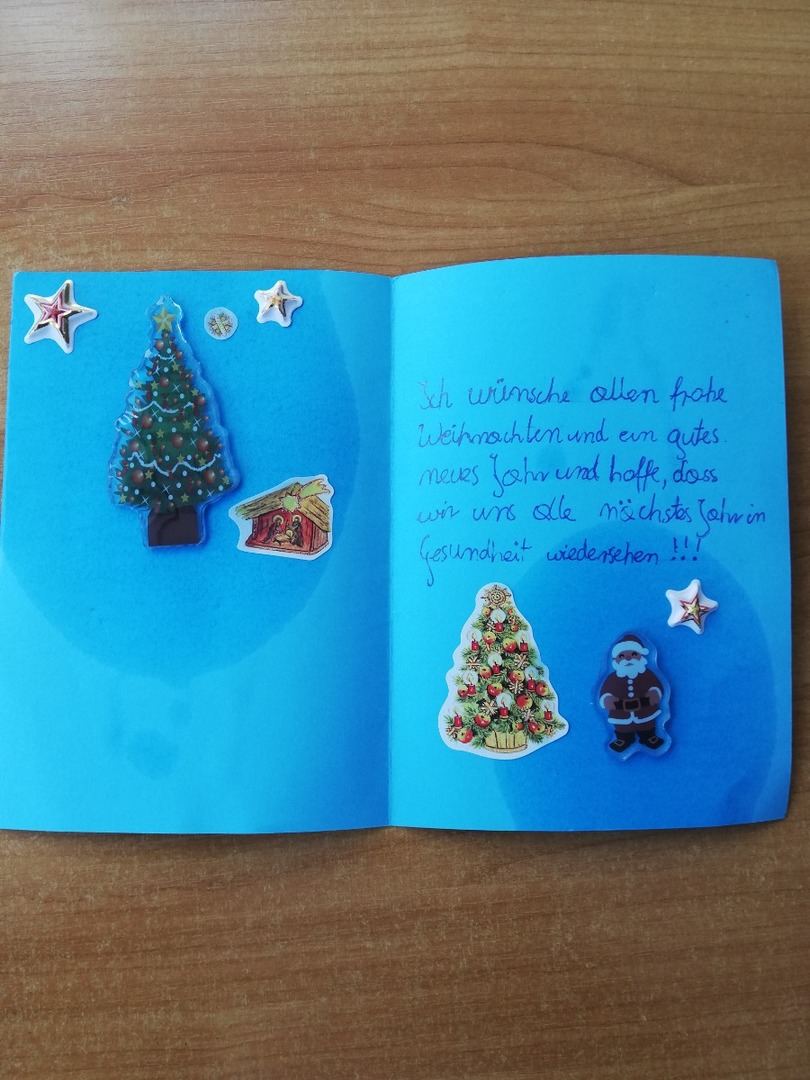 Ich wünsche allen frohe
Weihnachten und ein gutes
neues Jahr und hoffe, dass
wir uns alle nächstes Jahr in
Gesundheit wiedersehen !!!